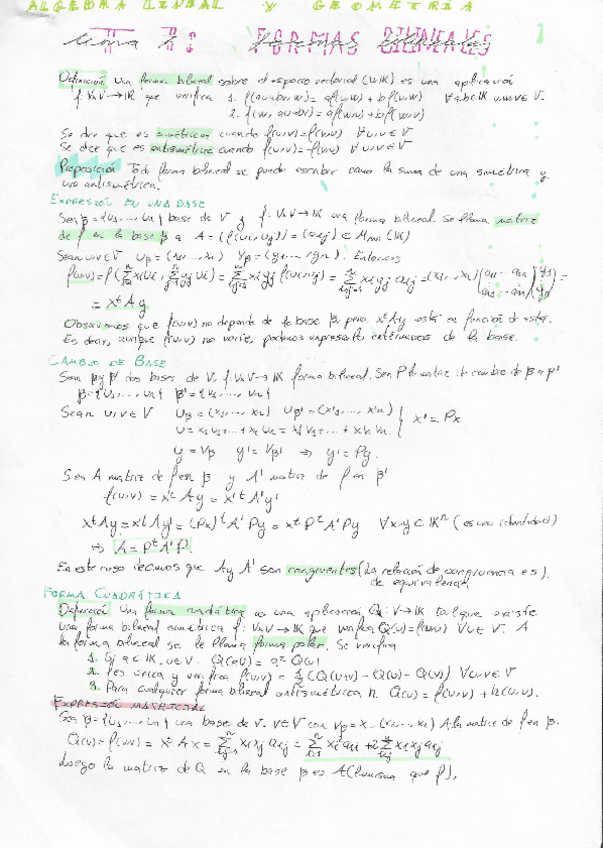 ALGEBRA LINEAL Y GEOMETRÍA
FORMAS BILINEALES
Definición Una forma bilineal sobre el espacio vectorial (V,IK) es una aplicación
f: VxV → IK que verifica 1. f(au+bv,w) = af(u,w) + bf(v,w) ∀a,b∈IK u,v,w∈V.
2. f(w, au+bv) = af(w,u) + bf(w,v)
Se dice que es simétrica cuando f(u,v)=f(v,u) ∀u,v∈V
Se dice que es antisimétrica cuando f(u,v)=-f(v,u) ∀u,v∈V
Proposición Toda forma bilineal se puede escribir como la suma de una simétrica y
una antisimétrica.
EXPRESIÓN EN UNA BASE
Sea β={u₁,..., un} base de V y f: VxV→IK una forma bilineal. Se llama matriz
de f en la base β a A = (f(ui,uj)) = (aij) ∈ Mnn (IK)
Sean u,v∈V uβ = (x₁,..., xn) vβ = (y₁,..., yn). Entonces
= xᵗAy
Observamos que f(u,v) no depende de la base β, pero xᵗAy está en función de ésta.
Es decir, aunque f(u,v) no varíe, podemos expresarlo en términos de la base.
CAMBIO DE BASE
Sean β y β' dos bases de V, f: VxV→IK forma bilineal. Sea P la matriz de cambio de β a β'
Sean u,v∈V uβ = (x₁,..., xn) uβ' = (x'₁,..., x'n) } x' = Px
y = vβ y' = vβ' ⇒ y' = Py.
Sea A matriz de f en β y A' matriz de f en β'
f(u,v) = xᵗAy = x'ᵗA'y'
xᵗAy = x'ᵗA'y' = (Px)ᵗA'Py = xᵗPᵗA'Py ∀x,y∈IKⁿ (es una identidad)
⇒ A = PᵗA'P
En este caso decimos que A y A' son congruentes (La relación de congruencia es
de equivalencia).
FORMA CUADRÁTICA
Definición Una forma cuadrática es una aplicación Q: V→IK tal que existe
una forma bilineal simétrica f: VxV→IK que verifica Q(u)=f(u,u) ∀u∈V. A
la forma bilineal se le llama forma polar. Se verifica
1. Si a∈IK, u∈V. Q(au) = a² Q(u)
2. f es única y verifica f(u,v) = ½(Q(u+v) - Q(u) - Q(v)) ∀u,v∈V
3. Para cualquier forma bilineal antisimétrica h. Q(u) = f(u,u) + h(u,u).
EXPRESIÓN MATRICIAL
Sea β={u₁,..., un} una base de V. v∈V con vβ = x = (x₁,..., xn) A la matriz de f en β.
Luego la matriz de Q en la base β es A (la misma que f).